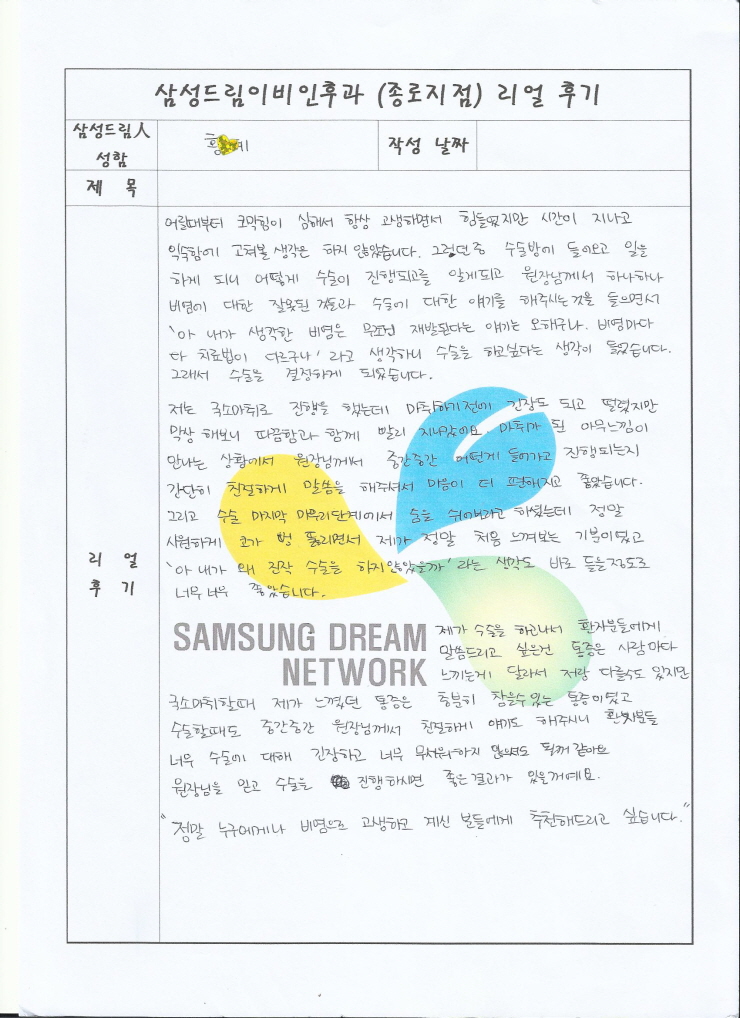 삼성드림이비인후과 (종로지점) 리얼 후기
삼성드림人
성함
작성 날짜
제 목
어릴때부터 코막힘이 심해서 항상 고생하면서 힘들었지만 시간이 지나고
익숙함에 고쳐볼 생각은 하지 않았습니다. 그렇던 중 수술방에 들어오고 일을
하게 되니 어떻게 수술이 진행되고를 알게되고 원장님께서 하나하나
비염에 대한 잘못된 것들과 수술에 대한 얘기를 해주시는것을 들으면서
'아 내가 생각한 비염은 무조건 재발된다는 얘기는 오해구나. 비염마다
다 치료법이 다르구나' 라고 생각하니 수술을 하고싶다는 생각이 들었습니다.
그래서 수술을 결정하게 되었습니다.
저는 국소마취로 진행을 했는데 마취하기전에 긴장도 되고 떨렸지만
막상 해보니 따끔함과 함께 빨리 지나갔어요. 마취가 된 아무느낌이
안나는 상황에서 원장님께서 중간중간 어떤게 들어가고 진행되는지
간단히 친절하게 말씀을 해주셔서 마음이 더 편해지고 좋았습니다.
그리고 수술 마지막 마무리단계에서 숨을 쉬어보라고 하셨는데 정말
시원하게 코가 뻥 뚫리면서 제가 정말 처음 느껴보는 기분이었고
'아 내가 왜 진작 수술을 하지않았을까' 라는 생각도 바로 들을정도로
너무너무 좋았습니다.
리 얼
후 기
SAMSUNG DREAM
NETWORK
제가 수술을 하고나서 환자분들에게
말씀드리고 싶은건 통증은 사람마다
느끼는게 달라서 저랑 다를수도 있지만
국소마취할때 제가 느꼈던 통증은 충분히 참을수있는 통증이었고
수술할때도 중간중간 원장님께서 친절하게 얘기도 해주시니 환자분들
너무 수술에 대해 긴장하고 너무 무서워하지 않으셔도 될꺼 같아요
원장님을 믿고 수술을 진행하시면 좋은결과가 있을꺼예요.
"정말 누구에게나 비염으로 고생하고 계신 분들에게 추천해드리고 싶습니다."